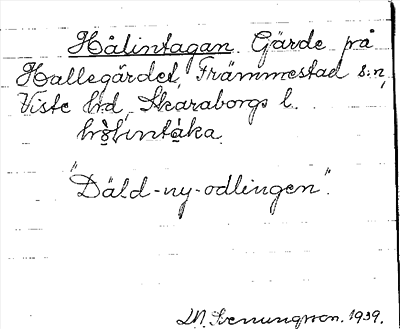 Hålintagan. Gärde på
Hallegärdet, Främmestad s:n,
Viste hd, Skaraborgs l.
hɔ̀lintáka.
"Däld-ny-odlingen".
M. Svenungsson. 1939.